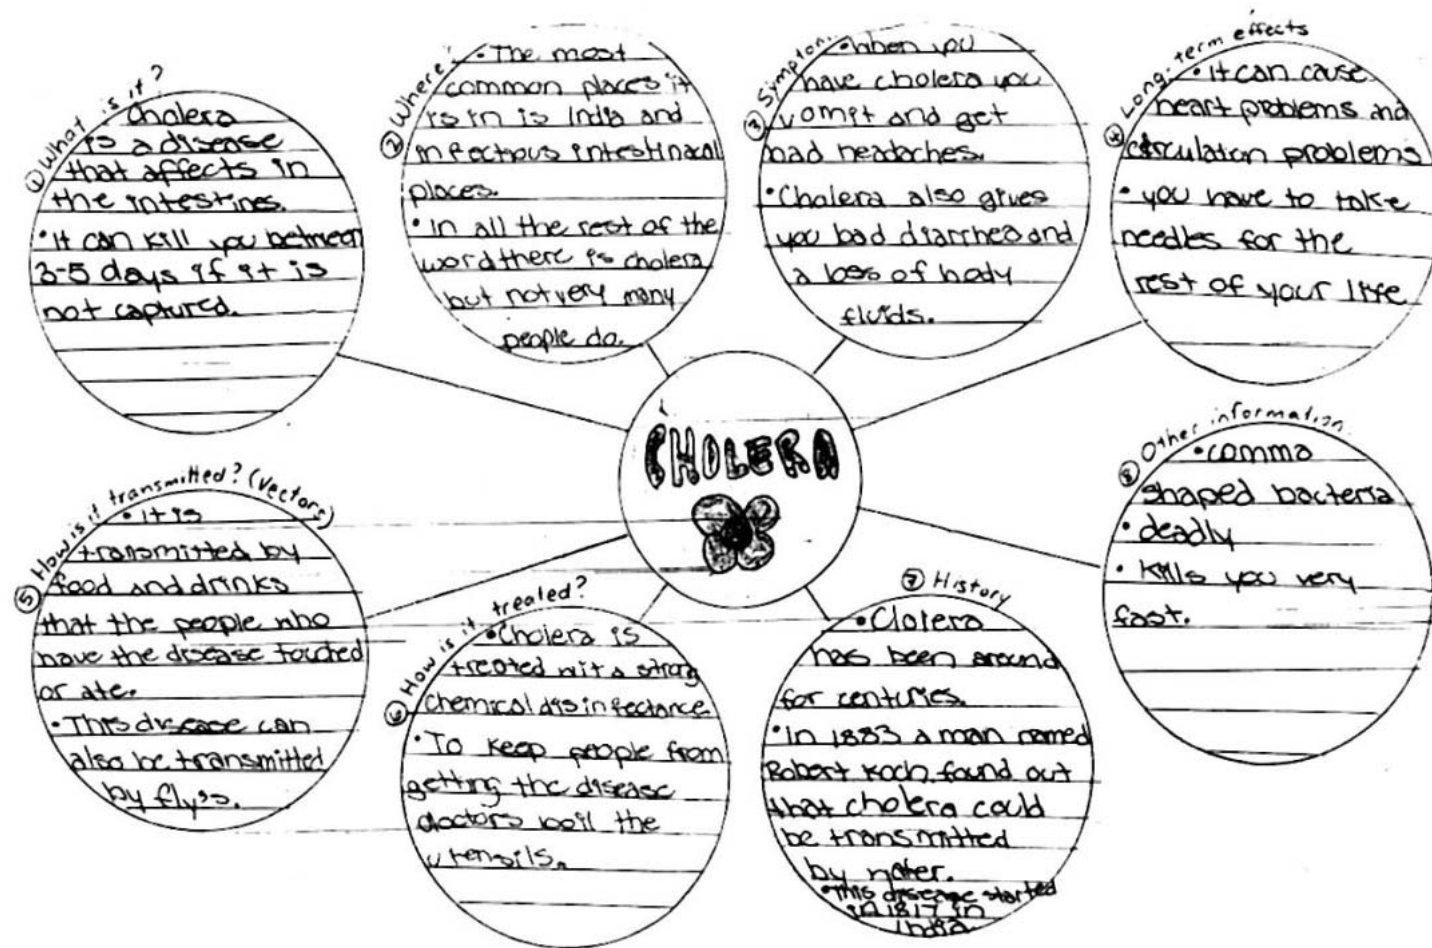 ① What is it?
Cholera
is a disease
that affects in
the intestines.
• It can kill you between
3-5 days if it is
not captured.
② Where?
• The most
common places it
is in is India and
infectious intestinacal
places.
• In all the rest of the
word there is cholera
but not very many
people do.
③ Symptoms
• When you
have cholera you
vomit and get
bad headaches.
• Cholera also gives
you bad diarrhea and
a loss of body
fluids.
④ Long-term effects
• It can cause
heart problems and
circulation problems
• you have to take
needles for the
rest of your life
CHOLERA
⑤ How is it transmitted? (Vectors)
• It is
transmitted by
food and drinks
that the people who
have the disease touched
or ate.
• This disease can
also be transmitted
by fly's.
⑥ How is it treated?
• Cholera is
treated wit a strong
chemical disinfectance
• To keep people from
getting the disease
doctors boil the
utensils.
⑦ History
• Clolera
has been around
for centuries.
• In 1883 a man named
Robert Koch found out
that cholera could
be transmitted
by water.
• This disease started
in 1817 in
India.
⑧ Other information
• comma
shaped bacteria
• deadly
• Kills you very
fast.